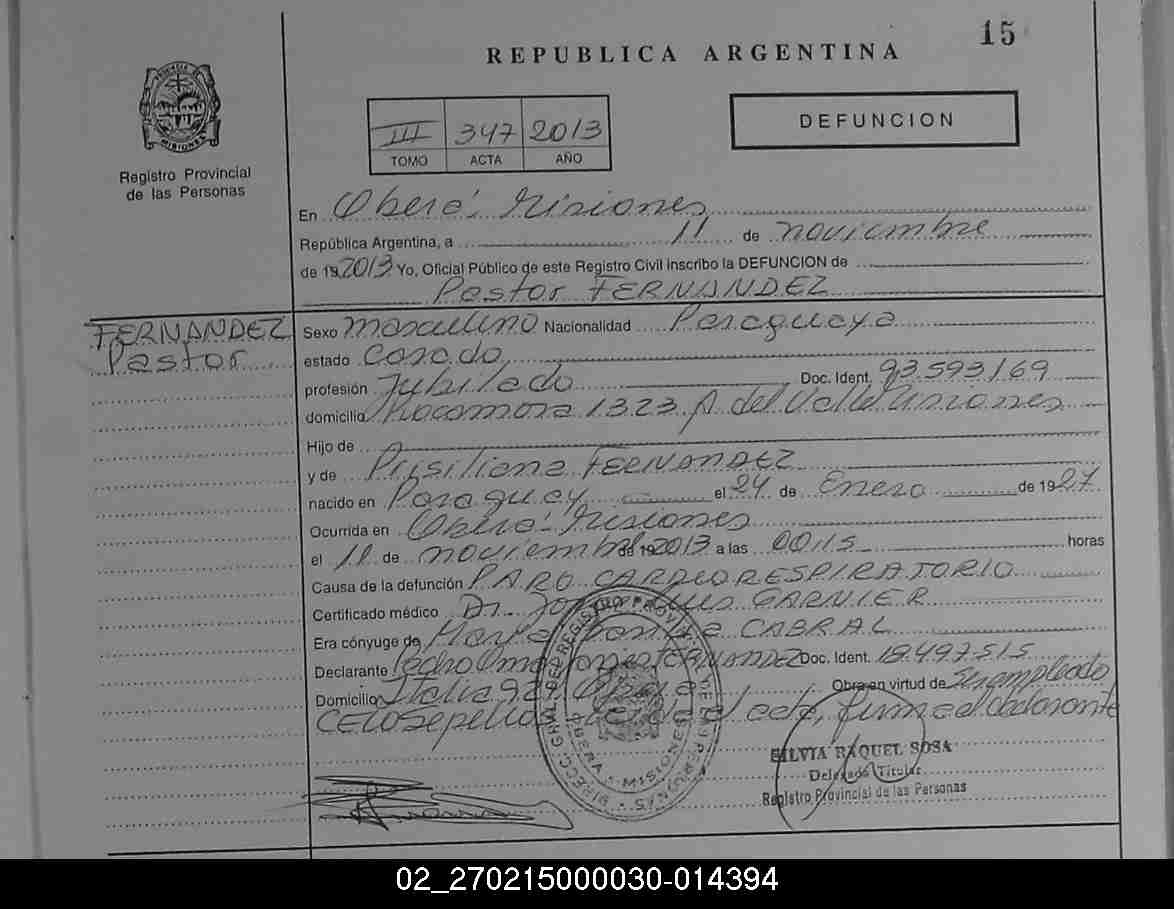 15
REPUBLICA ARGENTINA
PROVINCIA DE
MISIONES
Registro Provincial
de las Personas
III 347 2013
TOMO ACTA AÑO
DEFUNCION
En Oberá, Misiones
República Argentina, a 11 de noviembre
de 19 2013 Yo, Oficial Público de este Registro Civil inscribo la DEFUNCION de
Pastor FERNANDEZ
FERNANDEZ
Pastor
Sexo masculino Nacionalidad Paraguaya
estado Casado
profesión Jubilado Doc. Ident. 93593169
domicilio Rocamora 1323 A del Valle Misiones
Hijo de
y de Prisiliana FERNANDEZ
nacido en Paraguay el 24 de Enero de 1927
Ocurrida en Oberá, Misiones
el 11 de noviembre de 19 2013 a las 00:15 horas
Causa de la defunción PARO CARDIORESPIRATORIO
Certificado médico Dr. Luis GARNIER
Era cónyuge de CABRAL
Declarante Pedro Omar FERNANDEZ Doc. Ident. 18.497.515
Domicilio Italia Obra en virtud de Ser empleado
CELO Sepelios el acta, firma el declarante
DIRECC. GRAL. DEL REGISTRO PROVINCIAL DE LAS PERSONAS
OBERA - MISIONES
SILVIA RAQUEL SOSA
Delegado Titular
Registro Provincial de las Personas
02_270215000030-014394